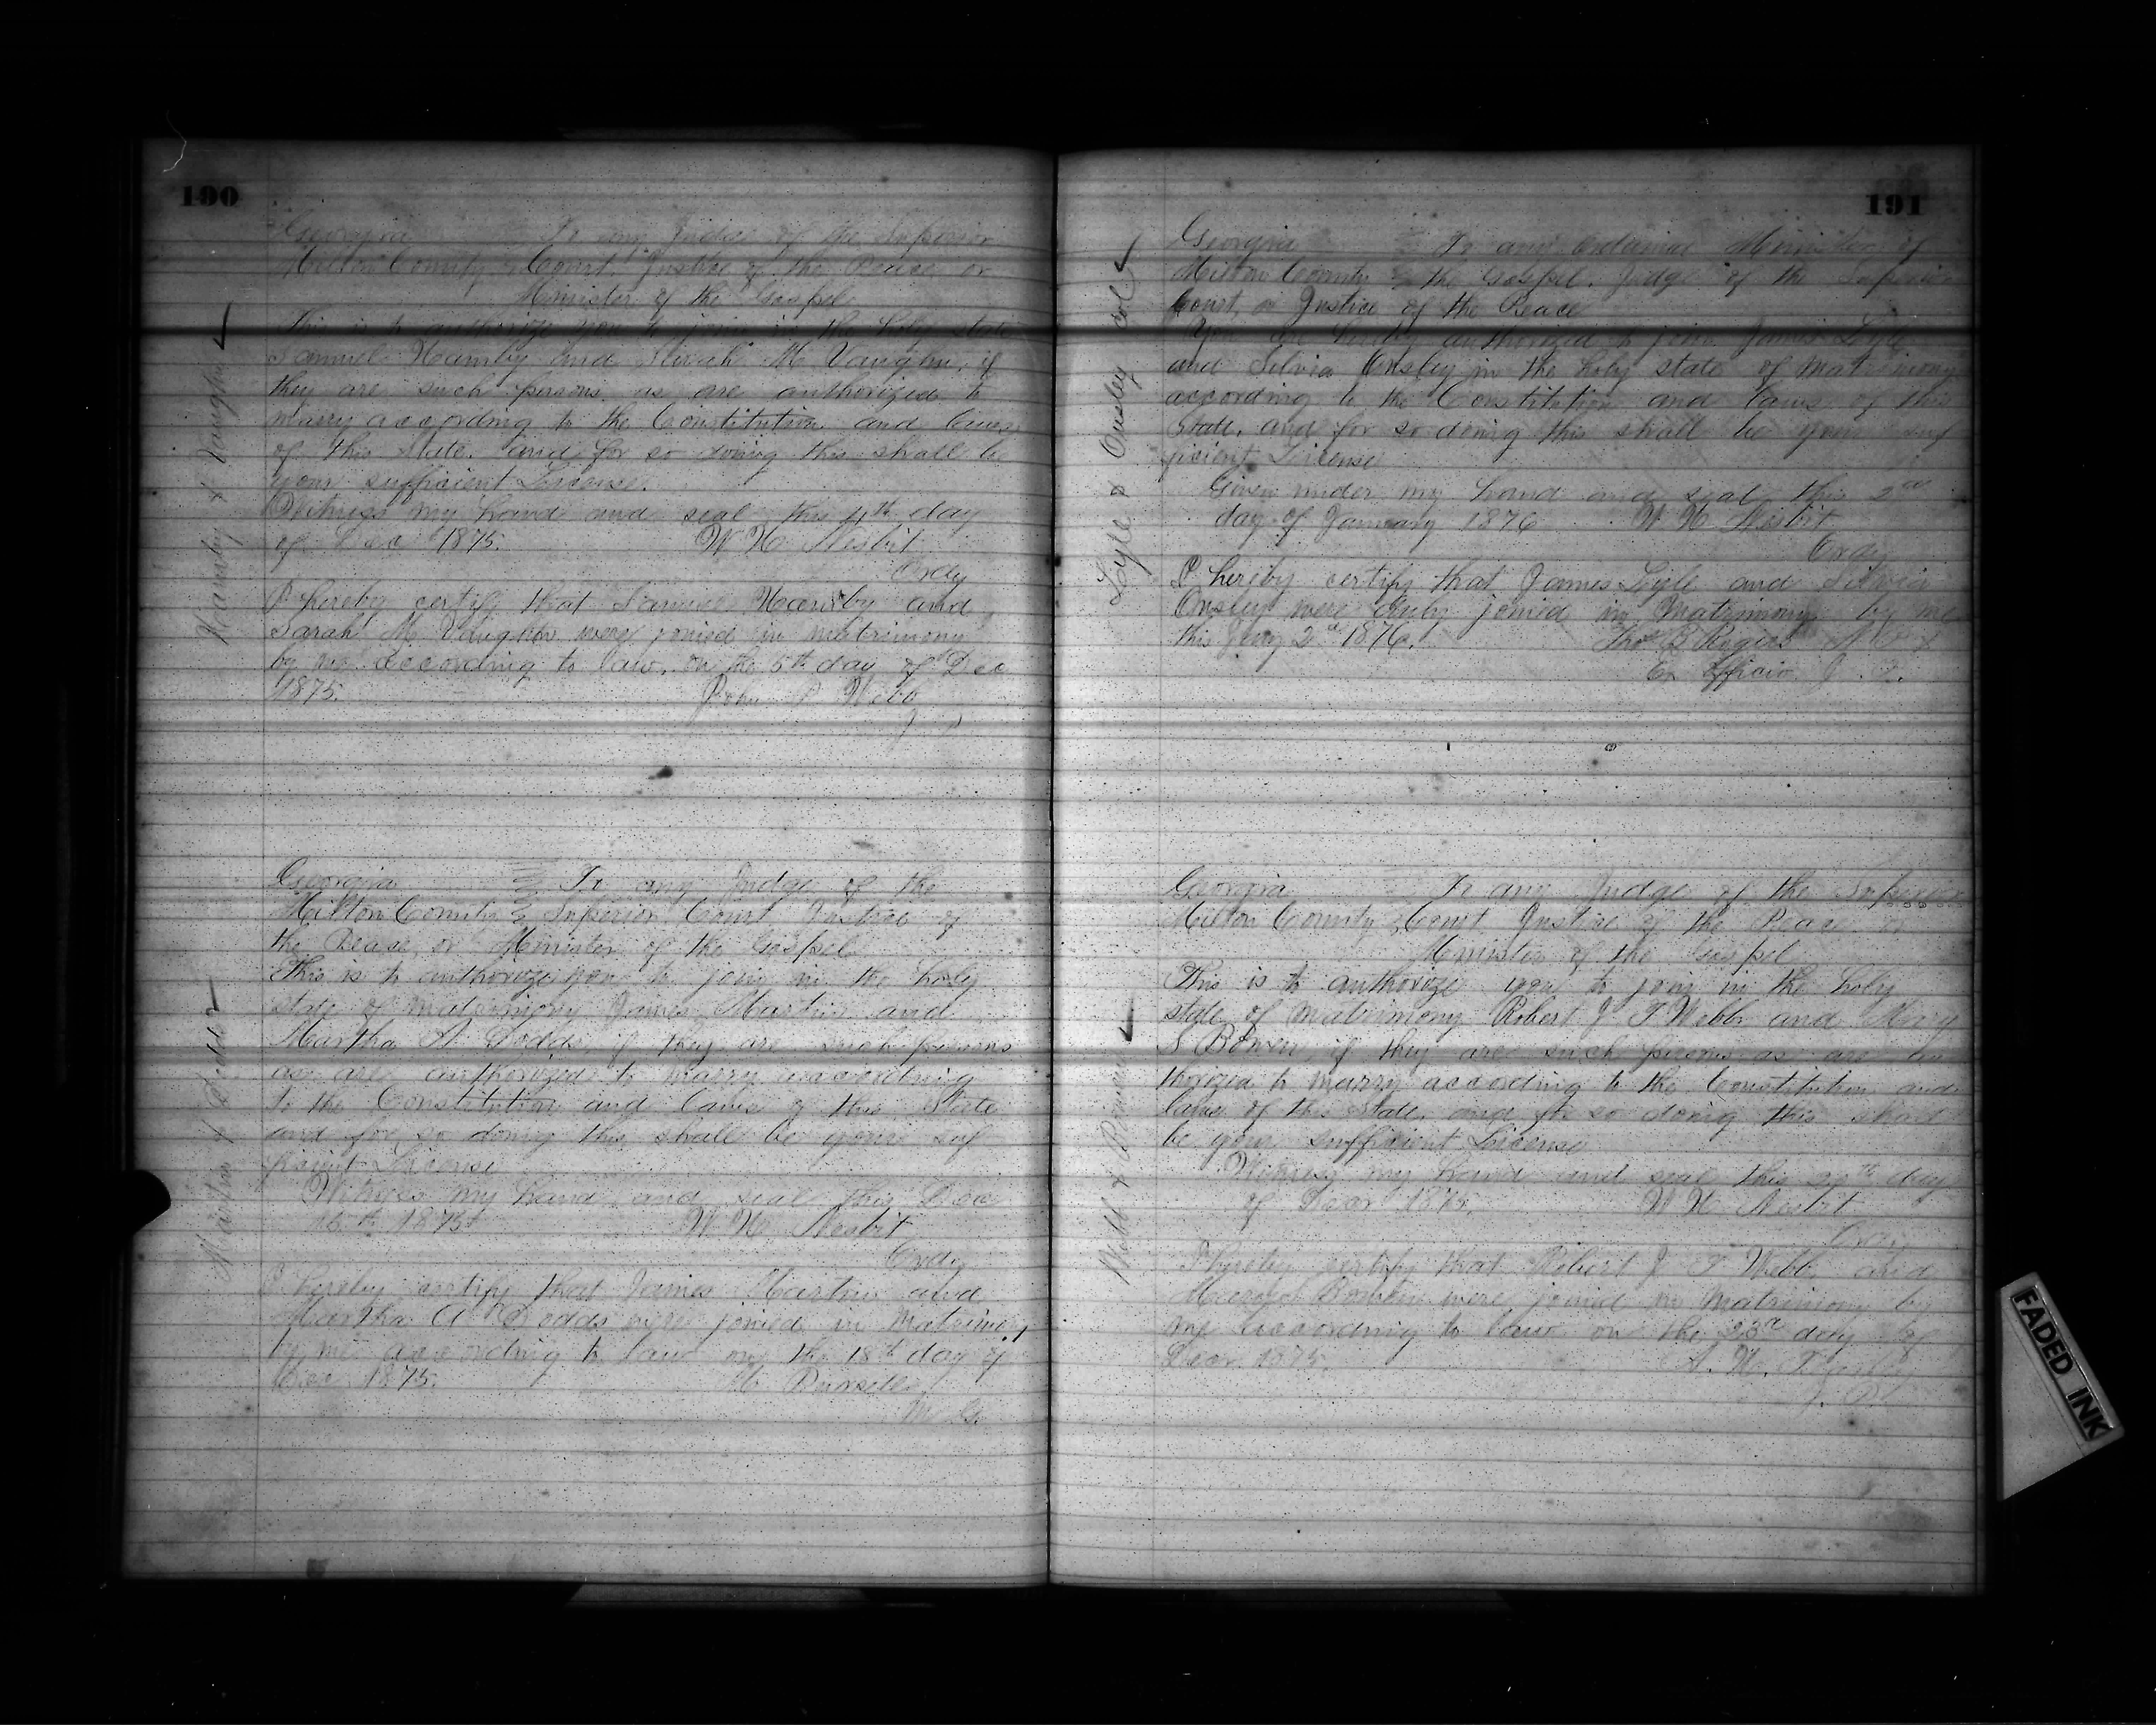 190
Hamby & Vaughn
Georgia To any Judge of the Superior
Milton County Court, Justice of the Peace or
Minister of the Gospel
This is to authorize you to join in the holy state
Samuel Hamby and Sarah M Vaughn, if
they are such persons as are authorized to
marry according to the Constitution and laws
of this State, and for so doing this shall be
your sufficient License.
Witness my hand and seal this 4th day
of Dec 1875. W H Nesbit
Ordy
I hereby certify that Samuel Hamby and
Sarah M Vaughn were joined in matrimony
by me according to law, on the 5th day of Dec
1875. John P Webb
J P
Martin & Dodds
Georgia To any Judge of the
Milton County Superior Court Justice of
the Peace, or Minister of the Gospel
This is to authorize you to join in the holy
state of matrimony James Martin and
Martha A Dodds, if they are such persons
as are authorized to marry according
to the Constitution and laws of this State
and for so doing this shall be your suf
ficient License
Witness my hand and seal this Dec
1875 W H Nesbit
Ordy
I hereby certify that James Martin and
Martha A Dodds were joined in Matrimony
by me according to law on the 18th day of
Dec 1875. Purcell
M G.
191
Lyle & Ousley col
Georgia To any Ordained Minister of
Milton County the Gospel, Judge of the Superior
Court, or Justice of the Peace
You are hereby authorized to join James Lyle
and Silvia Ousley in the holy state of matrimony
according to the Constitution and laws of this
State, and for so doing this shall be your suf
ficient License
Given under my hand and seal this 2nd
day of January 1876 W H Nesbit
Ordy
I hereby certify that James Lyle and Silvia
Ousley were duly joined in Matrimony by me
this Jany 2d 1876. Rogers
Ex Officio J. P.
Webb & Bowen
Georgia To any Judge of the Superior
Milton County Court Justice of the Peace or
Minister of the Gospel
This is to authorize you to join in the holy
state of matrimony Robert J T Webb and Mary
S Bowen, if they are such persons as are au
thorized to marry according to the Constitution and
laws of this State, and for so doing this shall
be your sufficient License
Witness my hand and seal this day
of Decr 1875. W H Nesbit
Ordy
I hereby certify that Robert J T Webb and
Mary S Bowen were joined in Matrimony by
me according to law on the 23d day of
Decr 1875. A. W.
J. P.
FADED INK